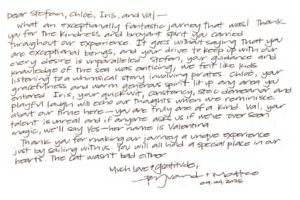 Dear Stefan, Chloé, Iris, and Val —
What an exceptionally fantastic journey that was! Thank
you for the kindness and buoyant spirit you carried
throughout our experience. It goes without saying that you
are exceptional beings, and your drive to keep up with our
every desire is unparalleled. Stefan, your guidance and
knowledge of the sea was enticing, we felt like kids
listening to a whimsical story involving pirates. Chloé, your
gracefulness and warm generous spirit lit up any area you
entered. Iris, your quick wit, constancy, stoic demeanor and
playful laugh will echo our thoughts when we reminisce
about our time here — you are truly one of a kind. Val, your
talent is unreal and if anyone asks us if we've ever seen
magic, we'll say Yes — her name is Valentina
Thank you for making our journey a unique experience
just by sailing with us. You will all hold a special place in our
hearts. The cat wasn't bad either.
Much love + gratitude,
+ Matteo